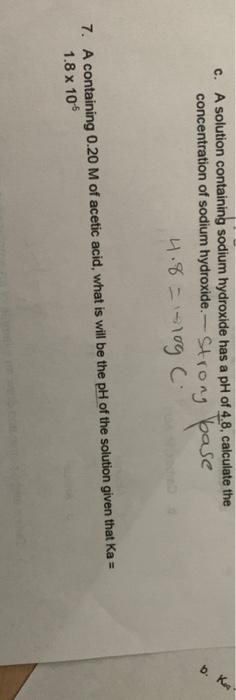 c. A solution containing sodium hydroxide has a pH of 4.8, calculate the
concentration of sodium hydroxide. — Strong base
4.8 = -log C.
7. A containing 0.20 M of acetic acid, what is will be the pH of the solution given that Ka =
1.8 x 10-5
b.